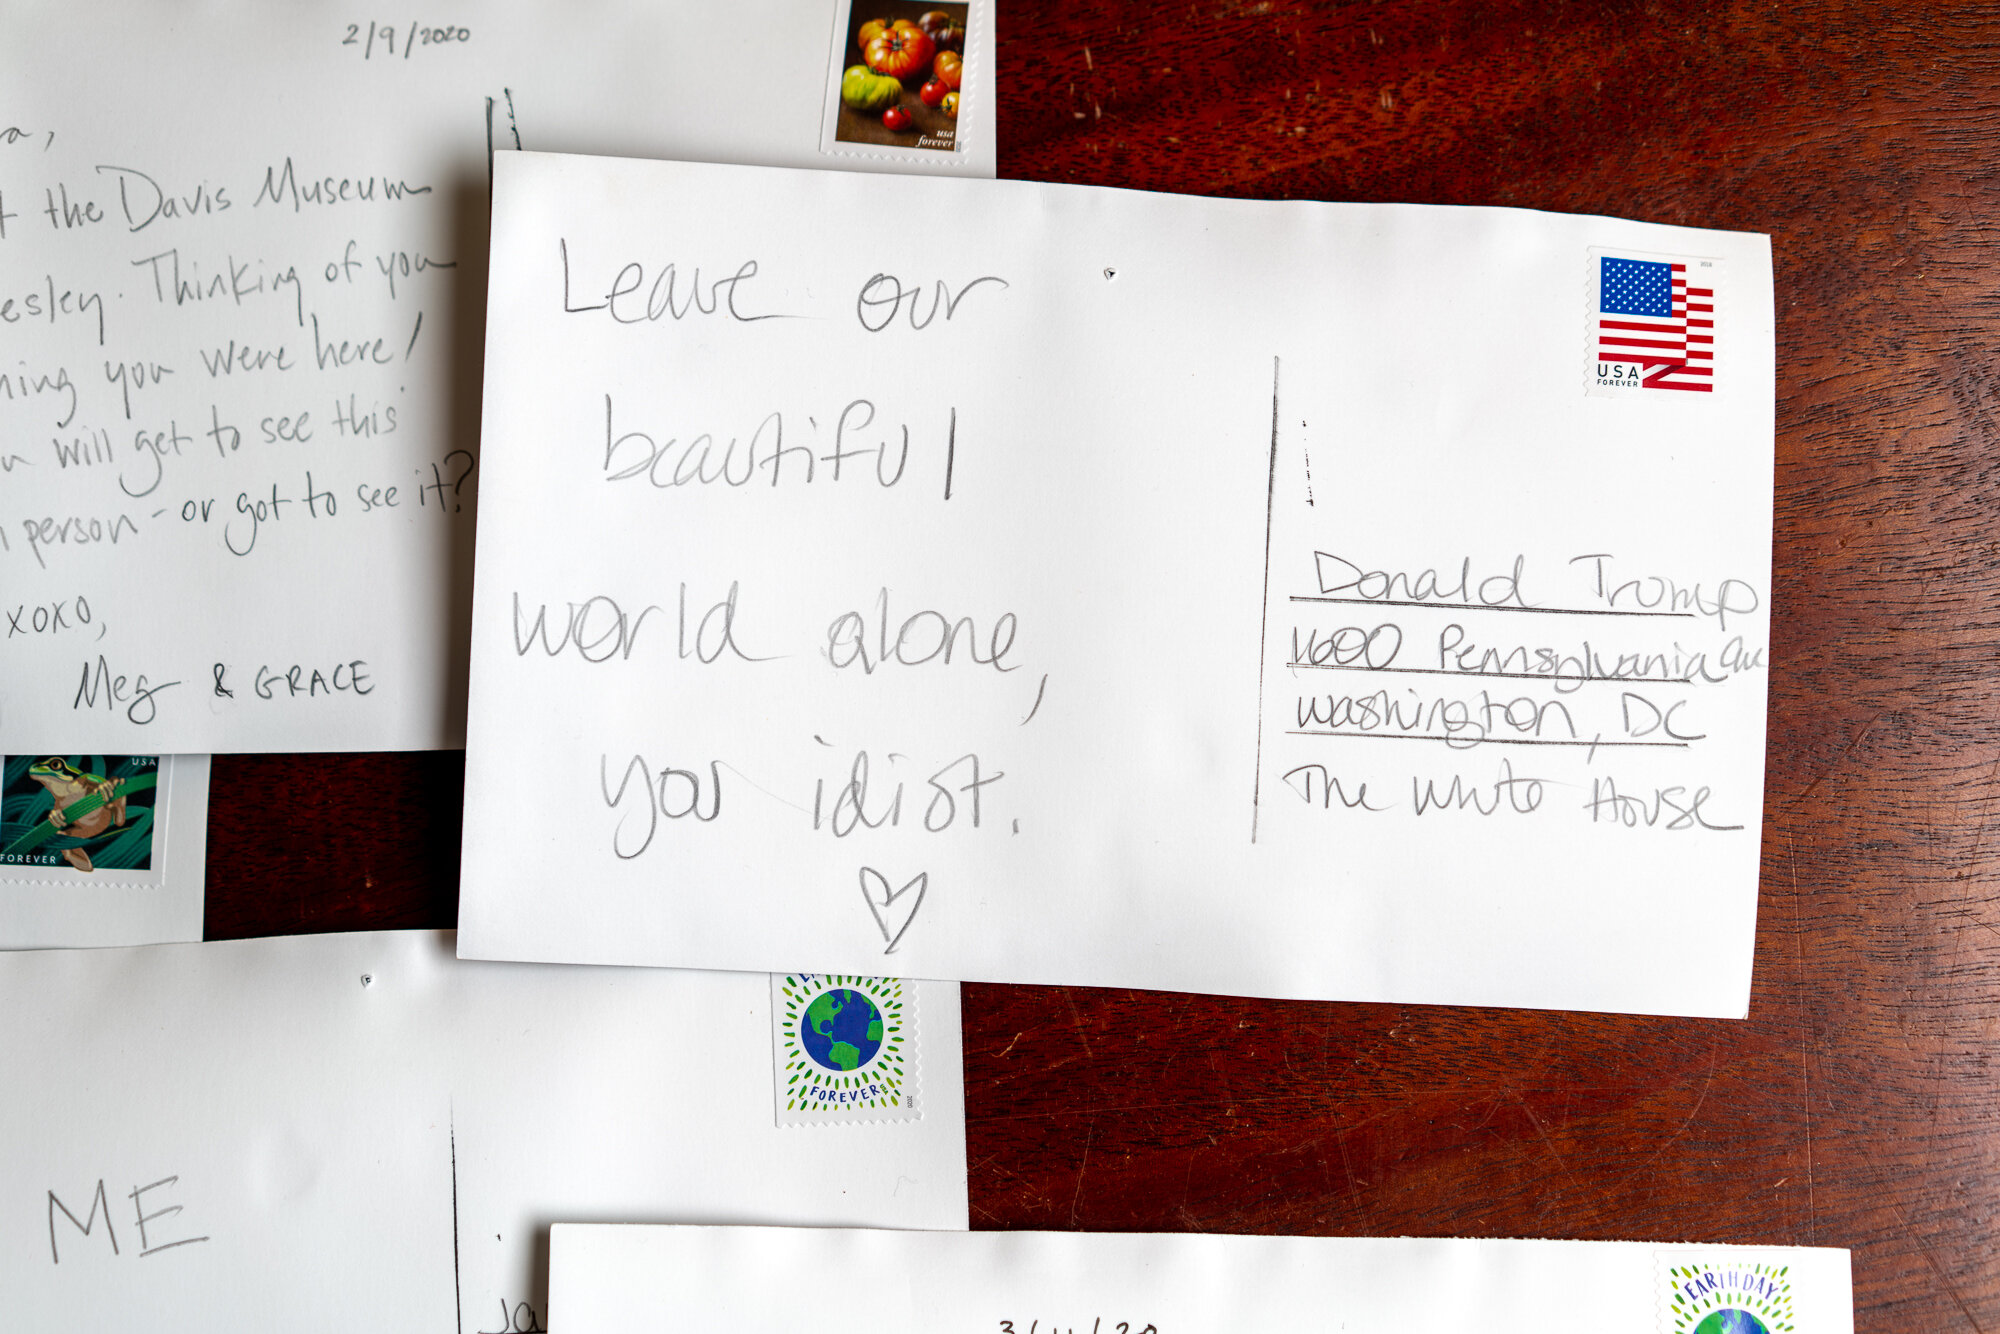 2/9/2020
usa
forever
the Davis Museum
Thinking of you
you were here!
will get to see this
person - or got to see it?
xoxo,
Meg & GRACE
Leave our
beautiful
world alone,
you idiot.
2018
USA
FOREVER
Donald Trump
1600 Pennsylvania Ave
Washington, DC
The White House
USA
FOREVER
FOREVER
2020
ME
EARTH DAY